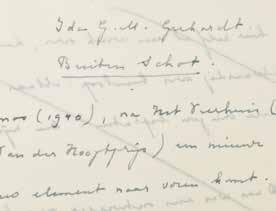 Ida G.M. Gerhardt
Buiten Schot.
(1940), na Het Veerhuis (
van der Hoogtprijs) een nieuw
element naar voren komt.